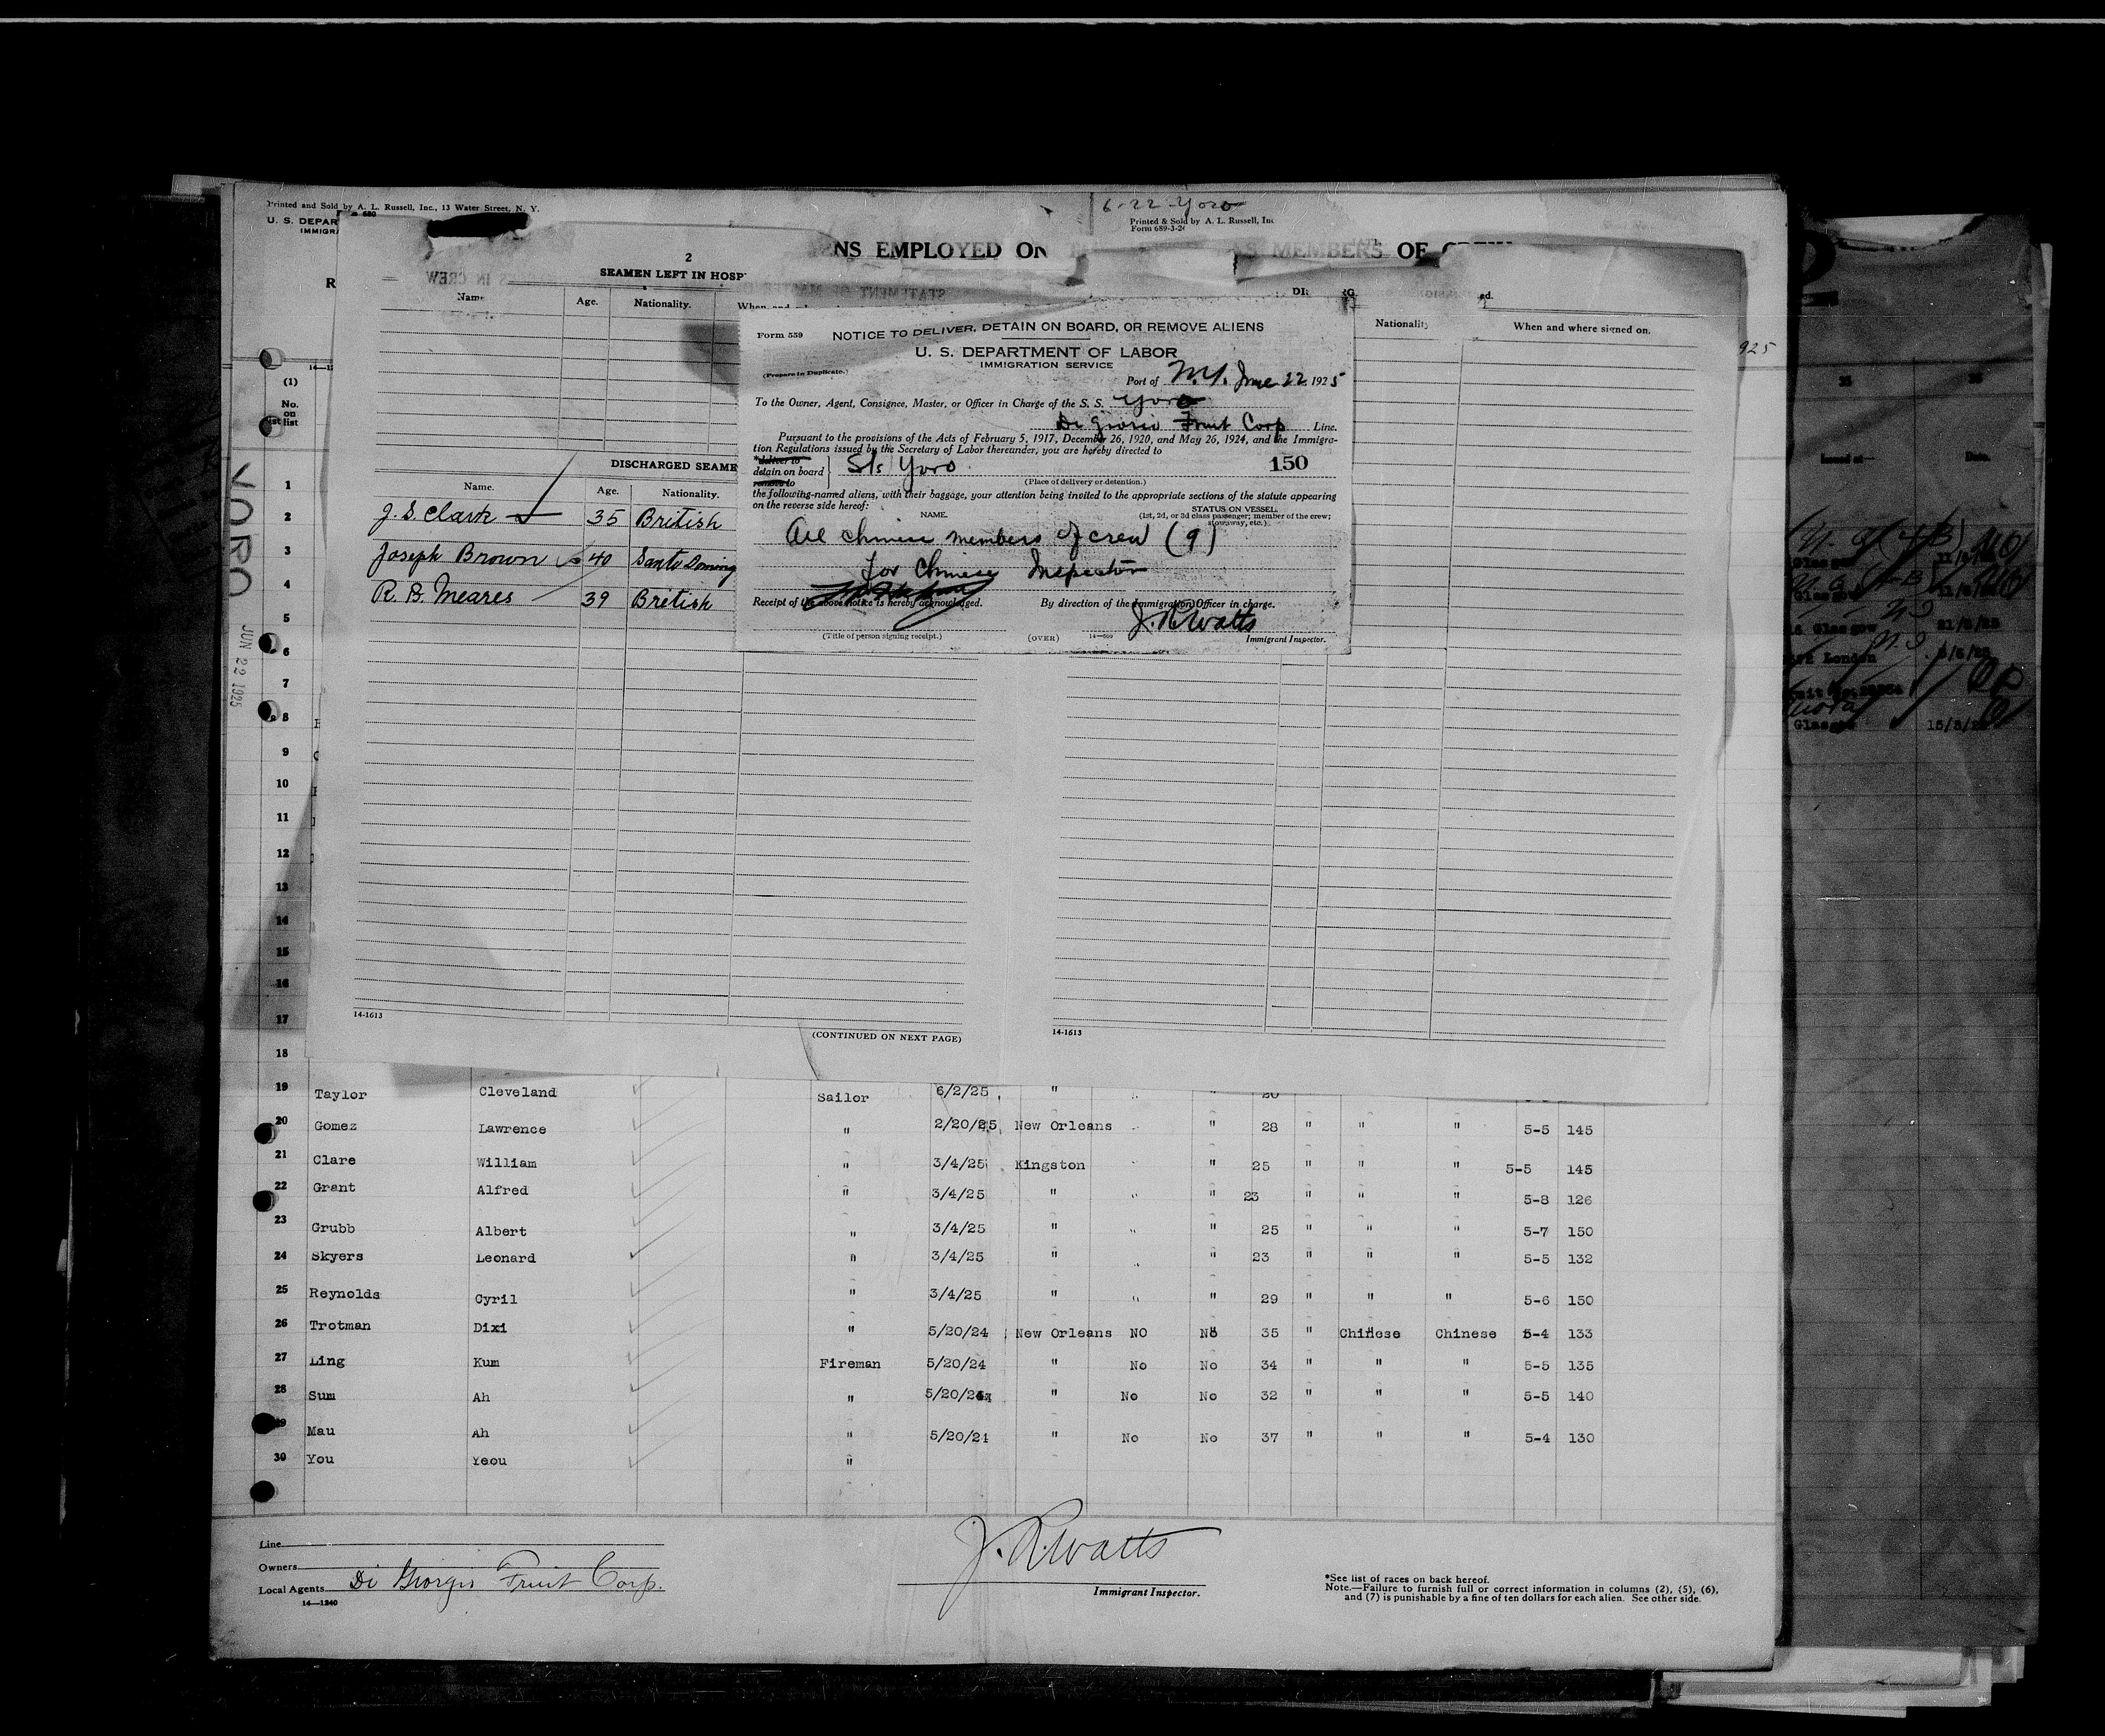 6-22-Yoro
Printed and Sold by A. L. Russell, Inc., 13 Water Street, N. Y.
Printed & Sold by A. L. Russell, Inc
Form 689-3-24
U. S. DEPAR
IMMIGRA
NS EMPLOYED ON
AS MEMBERS OF CREW
2
SEAMEN LEFT IN HOSP
Name
Age.
Nationality.
When and
Nationality
When and where signed on.
925
Form 559
NOTICE TO DELIVER, DETAIN ON BOARD, OR REMOVE ALIENS
U. S. DEPARTMENT OF LABOR
IMMIGRATION SERVICE
(Prepare in Duplicate.)
Port of N.Y. June 22, 1925
To the Owner, Agent, Consignee, Master, or Officer in Charge of the S. S. Yoro
Di Giorio Fruit Corp Line.
Pursuant to the provisions of the Acts of February 5, 1917, December 26, 1920, and May 26, 1924, and the Immigra-
tion Regulations issued by the Secretary of Labor thereunder, you are hereby directed to
*deliver to
detain on board } S/s Yoro 150
remove to
(Place of delivery or detention.)
the following-named aliens, with their baggage, your attention being invited to the appropriate sections of the statute appearing
on the reverse side hereof:
NAME.
STATUS ON VESSEL.
(1st, 2d, or 3d class passenger; member of the crew;
stowaway, etc.)
All Chinese members of crew (9)
for Chinese Inspector
Receipt of the above notice is hereby acknowledged.
By direction of the Immigration Officer in charge.
J. R. Watts
(Title of person signing receipt.)
(OVER)
14—609
Immigrant Inspector.
(1)
No.
on
list
YORO
JUN 22 1925
DISCHARGED SEAME
Name.
Age.
Nationality.
J. S. Clark 35 British
Joseph Brown 40 Santo Doming
R. B. Meares 39 British
1
2
3
4
5
6
7
8
9
10
11
12
13
14
15
16
17
18
14-1613
(CONTINUED ON NEXT PAGE)
14-1613
19 Taylor Cleveland Sailor 6/2/25 "
20 Gomez Lawrence " 2/20/25 New Orleans " 28 " " " 5-5 145
21 Clare William " 3/4/25 Kingston " 25 " " " 5-5 145
22 Grant Alfred " 3/4/25 " " " 23 " " " 5-8 126
23 Grubb Albert " 3/4/25 " " " 25 " " " 5-7 150
24 Skyers Leonard " 3/4/25 " " " 23 " " " 5-5 132
25 Reynolds Cyril " 3/4/25 " " " 29 " " " 5-6 150
26 Trotman Dixi " 5/20/24 New Orleans NO No 35 " Chinese Chinese 5-4 133
27 Ling Kum Fireman 5/20/24 " No No 34 " " " 5-5 135
28 Sum Ah " 5/20/24 " No No 32 " " " 5-5 140
29 Mau Ah " 5/20/24 " No No 37 " " " 5-4 130
30 You Yeou "
Line
Owners
Local Agents Di Giorgio Fruit Corp.
14—1240
J. R. Watts
Immigrant Inspector.
*See list of races on back hereof.
Note.—Failure to furnish full or correct information in columns (2), (5), (6),
and (7) is punishable by a fine of ten dollars for each alien. See other side.
25
Issued at—
Date.
Glasgow
Glasgow
Glasgow 21/5/25
London
Glasgow